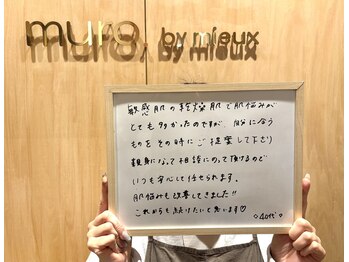 muro. by mieux
敏感肌の乾燥肌で肌悩みが
とても多かったのですが 自分に合う
ものをその時にご提案して下さり
親身になって相談にのって頂けるので
いつも安心して任せられます。
肌悩みも改善してきました!!
これからも続けたいと思います♡
40代